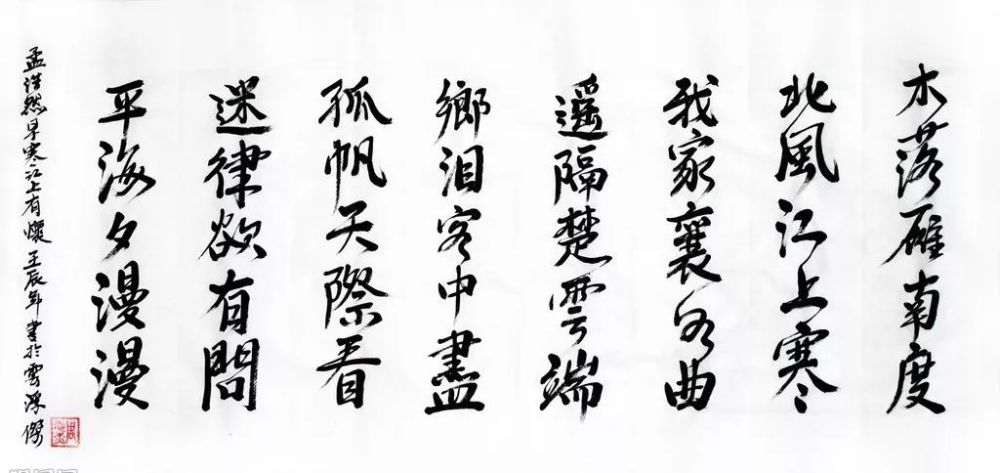 木落雁南度
北風江上寒
我家襄水曲
遥隔楚雲端
鄉泪客中盡
孤帆天際看
迷律欲有問
平海夕漫漫
孟浩然早寒江上有懷 壬辰年 書於雲深 傑